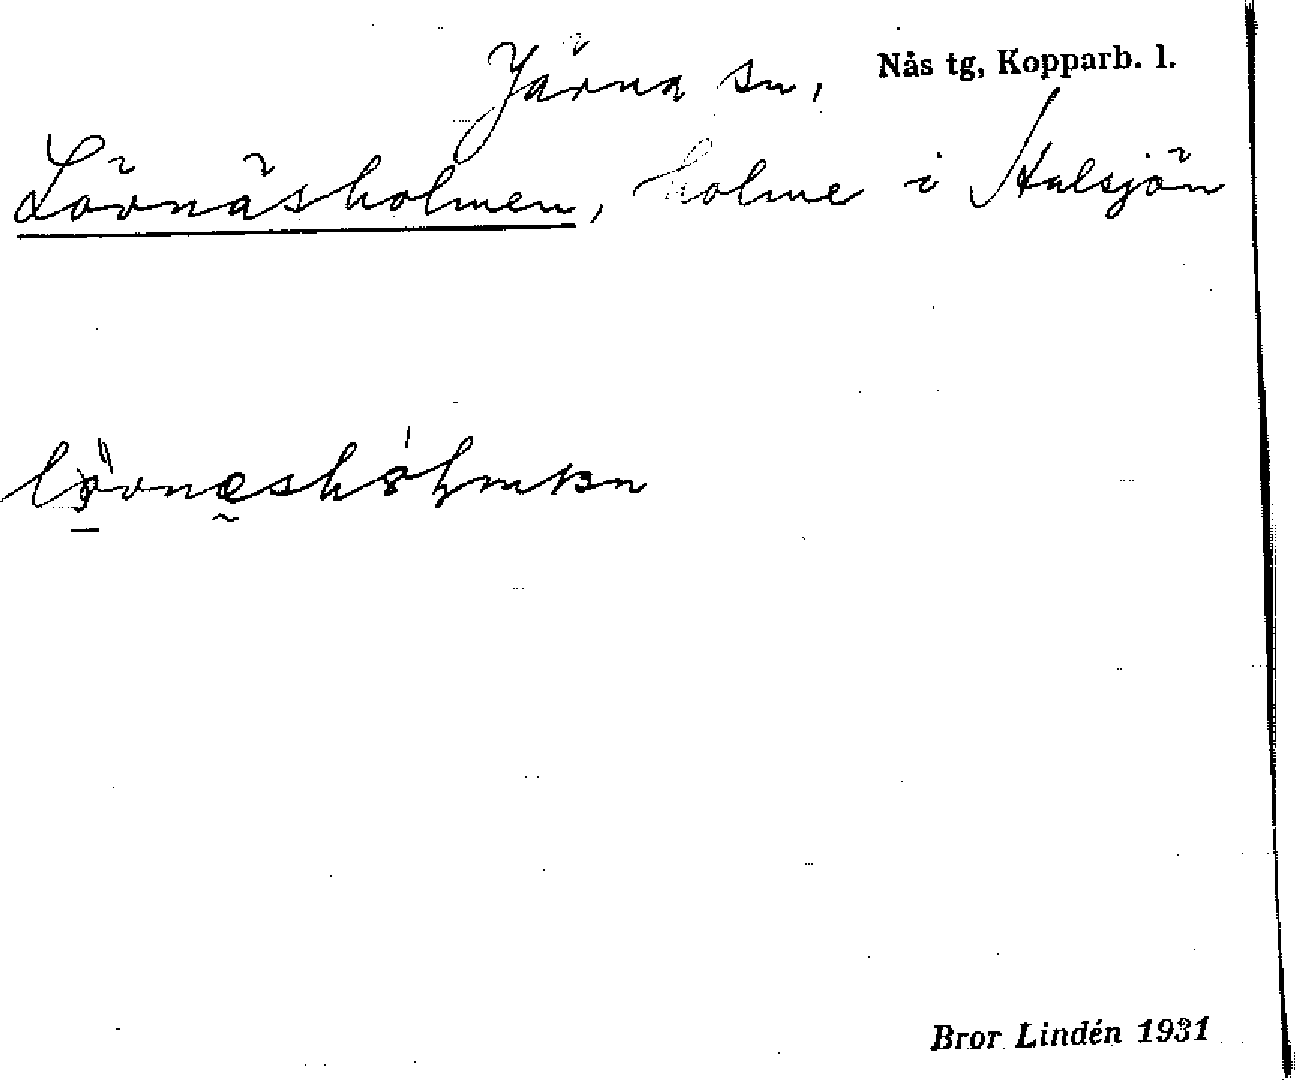 Järna sn, Nås tg, Kopparb. l.
Lövnäsholmen, holme i Hulsjön
Bror Lindén 1931